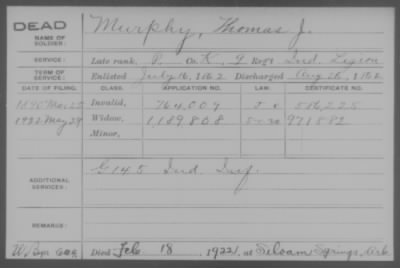 DEAD
NAME OF SOLDIER: Murphy, Thomas J.
SERVICE: Late rank, P. Co. K, 9 Regt Ind. Legion
TERM OF SERVICE: Enlisted July 16, 1862 Discharged Aug 1862
DATE OF FILING. CLASS. APPLICATION NO. LAW. CERTIFICATE NO.
1890 Invalid, 764,009 586,225
1922 May 29 Widow, 1,189,808 971882
Minor,
ADDITIONAL SERVICES: G 145 Ind. Inf.
REMARKS:
Died Feb 18, 1922, at Siloam Springs, Ark